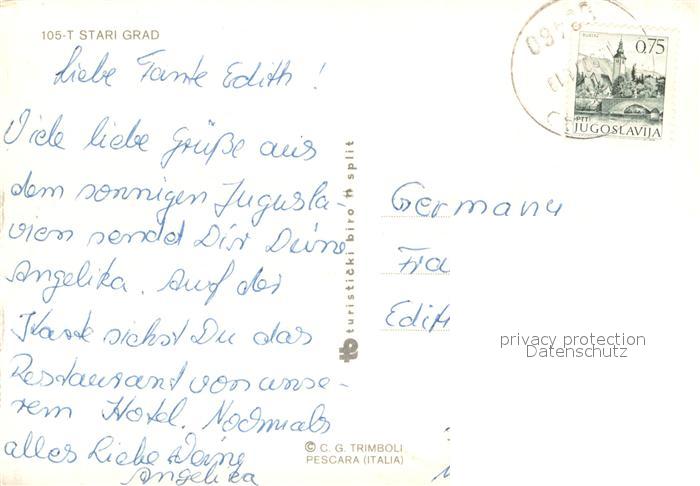 105-T STARI GRAD
Liebe Tante Edith !
Viele liebe Grüße aus
dem sonnigen Jugosla-
vien sendet Dir Deine
Angelika. Auf der
Karte siehst Du das
Restaurant von unse-
rem Hotel. Nochmals
alles Liebe Deine
Angelika
turistički biro split
© C. G. TRIMBOLI
PESCARA (ITALIA)
0,75
PTT
JUGOSLAVIJA
Germany
Fra
Edith
privacy protection
Datenschutz